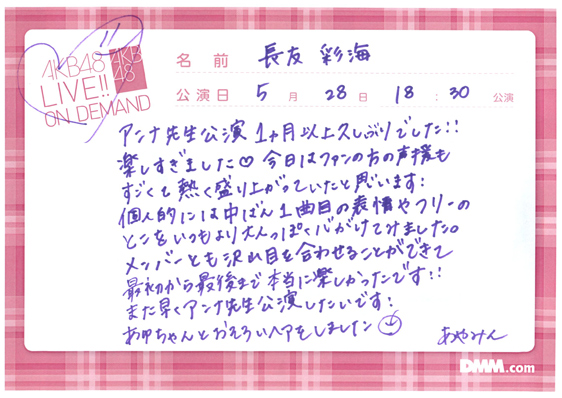 AKB48
LIVE!!
ON DEMAND
AKB
48
名前 長友 彩海
公演日 5月 28日 18:30 公演
アンナ先生公演 1ヶ月以上久しぶりでした!!
楽しすぎました♡ 今日はファンの方の声援も
すごくて熱く盛り上がっていたと思います!
個人的には中ばん1曲目の表情やフリーの
とこをいつもより大人っぽく心がけてみました。
メンバーとも沢山目を合わせることができて
最初から最後まで本当に楽しかったです!!
また早くアンナ先生公演したいです!
ちゃんとおそろいヘアをしました
あやみん
DMM.com